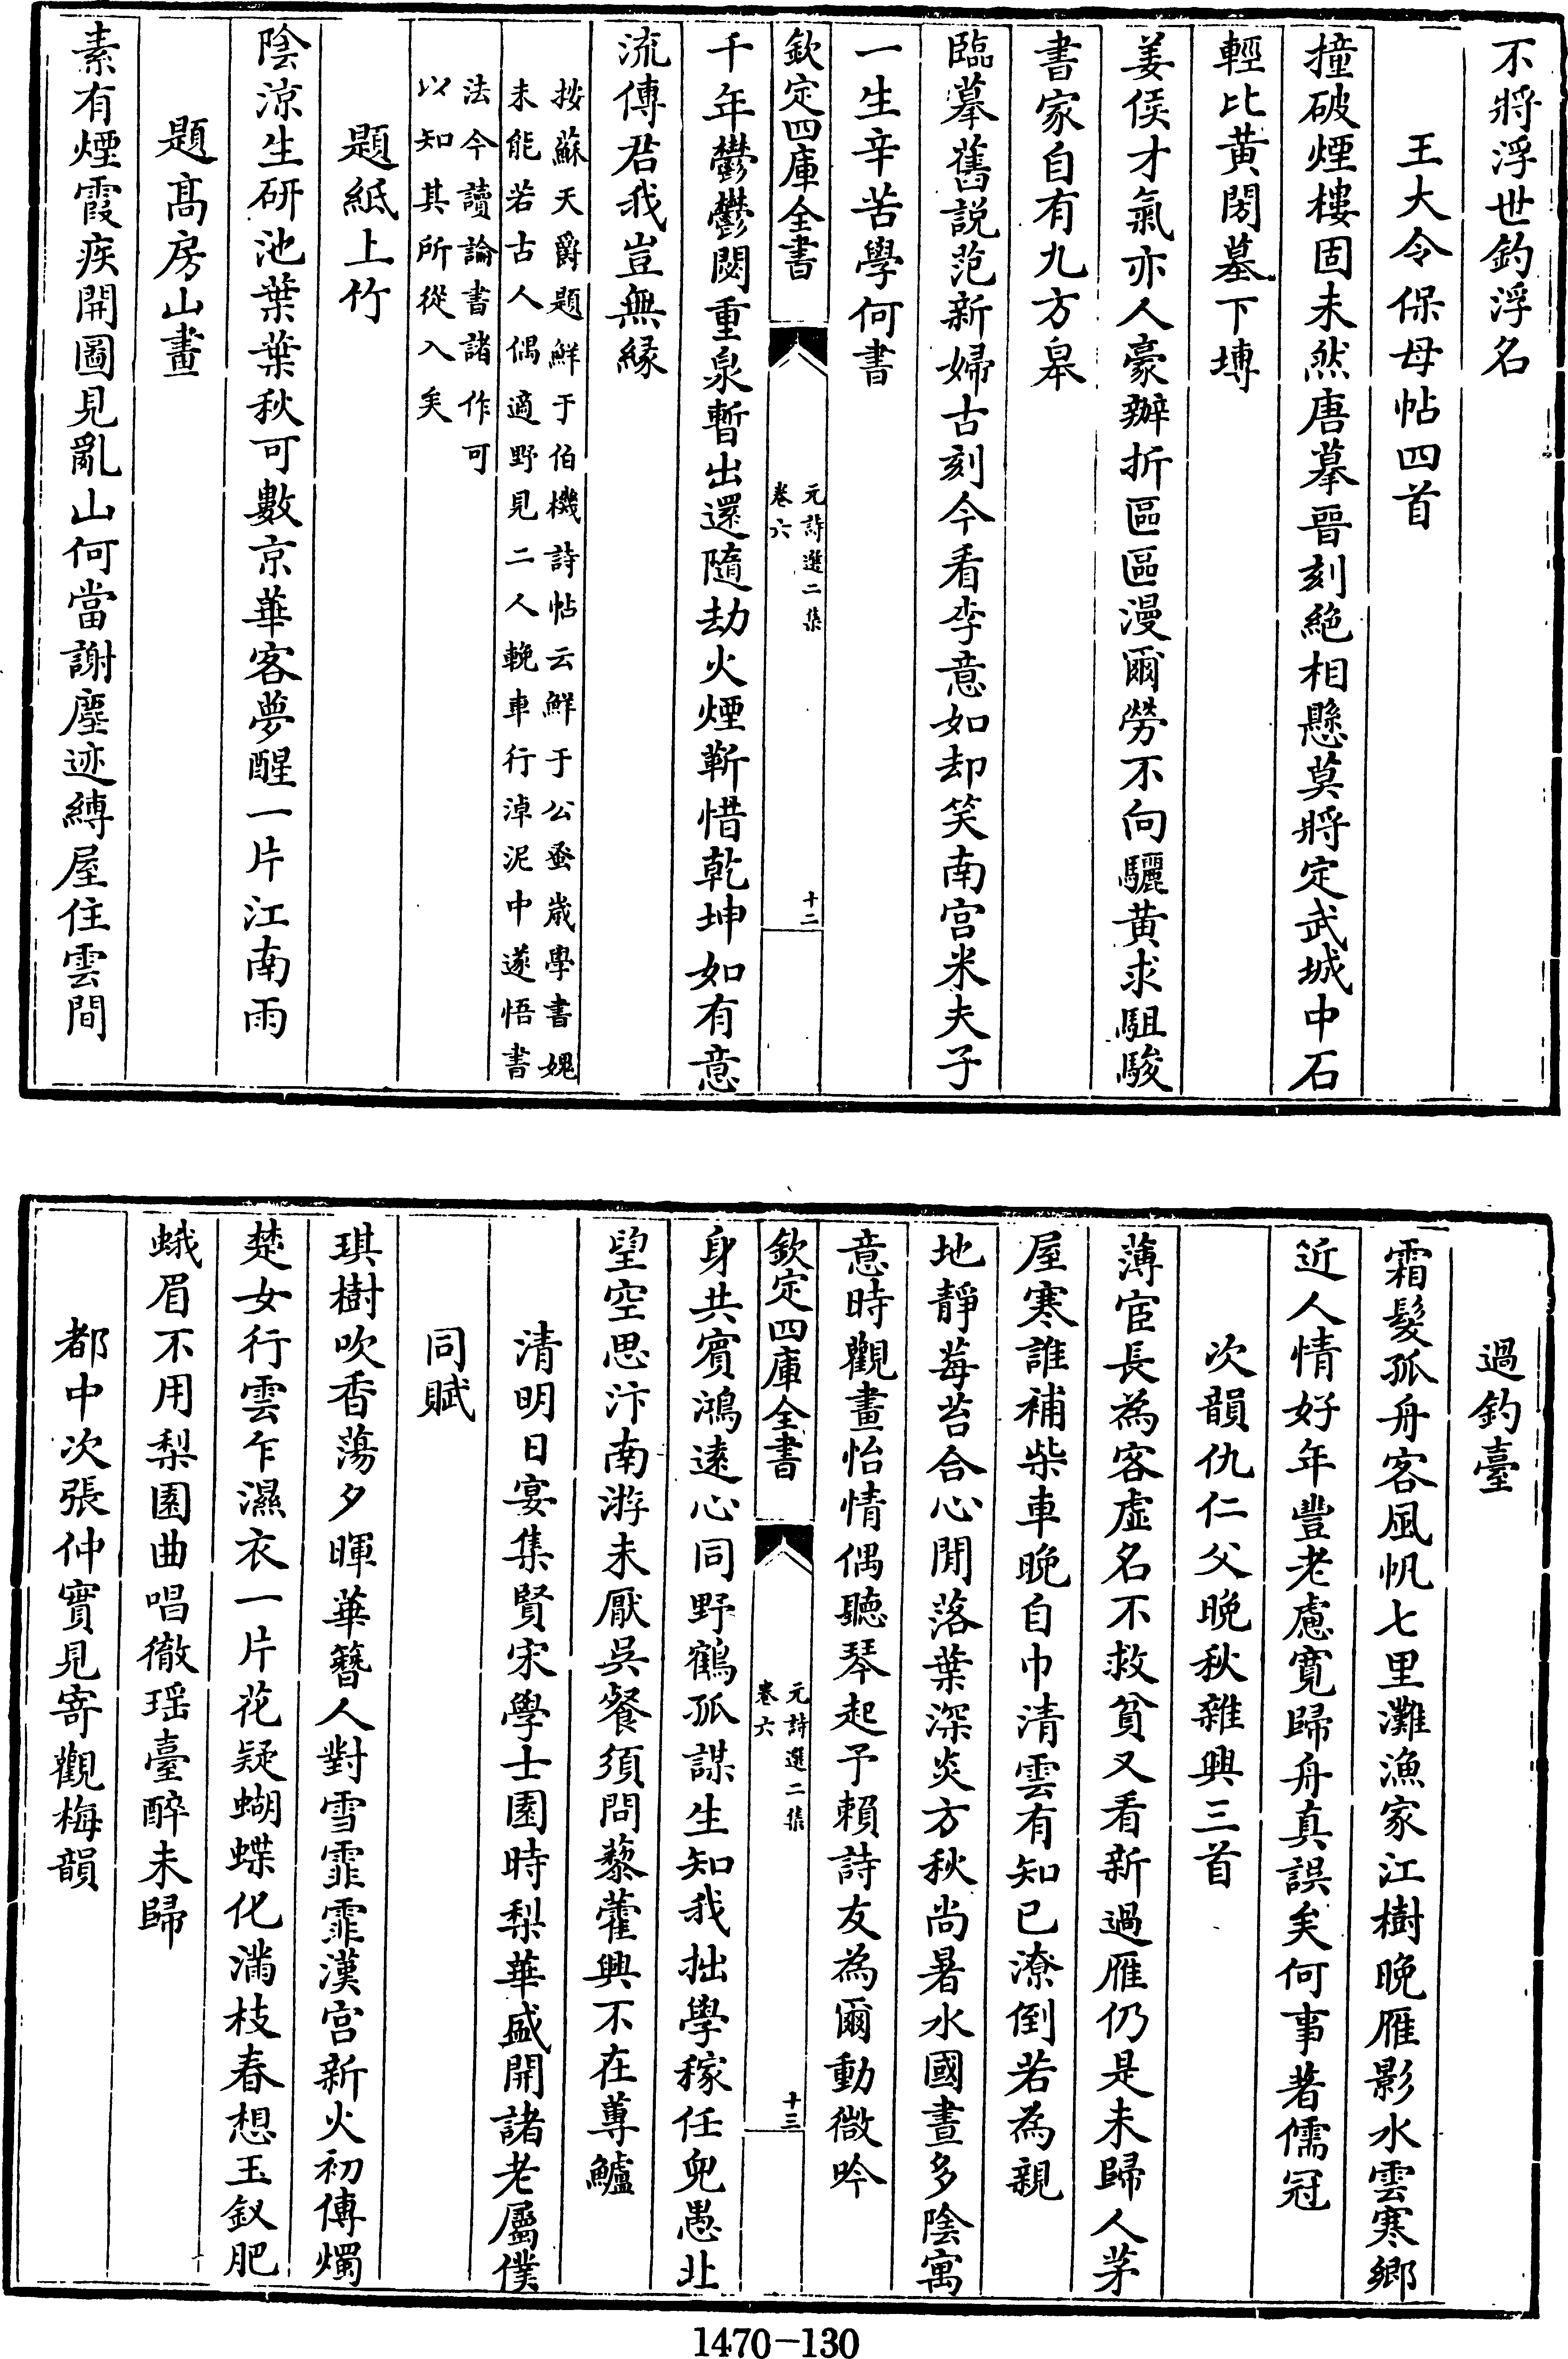 不將浮世釣浮名
王大令保母帖四首
撞破煙樓固未然唐摹晉刻絕相懸莫將定武城中石
輕比黃閍墓下塼
姜侯才氣亦人豪辦折區區漫爾勞不向驪黃求駔駿
書家自有九方皋
臨摹舊説范新婦古刻今看李意如却笑南宮米夫子
一生辛苦學何書
欽定四庫全書
元詩選二集
卷六
十二
千年鬱鬱閟重泉暫出還隨劫火煙靳惜乾坤如有意
流傳君我豈無緣
按蘇天爵題鮮于伯機詩帖云鮮于公蚤歲學書媿
未能若古人偶適野見二人輓車行淖泥中遂悟書
法今讀論書諸作可
以知其所從入矣
題紙上竹
陰涼生研池葉葉秋可數京華客夢醒一片江南雨
題髙房山畫
素有煙霞疾開圖見亂山何當謝塵迹縛屋住雲間
過釣臺
霜髮孤舟客風帆七里灘漁家江樹晚雁影水雲寒鄉
近人情好年豐老慮寬歸舟真誤矣何事著儒冠
次韻仇仁父晚秋雜興三首
薄宦長為客虛名不救貧又看新過雁仍是未歸人茅
屋寒誰補柴車晚自巾清雲有知已潦倒若為親
地靜莓苔合心閒落葉深炎方秋尚暑水國晝多陰寓
意時觀畫怡情偶聽琴起予賴詩友為爾動微吟
欽定四庫全書
元詩選二集
卷六
十三
身共賓鴻遠心同野鶴孤謀生知我拙學稼任兒愚北
望空思汴南游未厭吳餐須問藜藿興不在蓴鱸
清明日宴集賢宋學士園時梨華盛開諸老屬僕
同賦
琪樹吹香蕩夕暉華簪人對雪霏霏漢宮新火初傳燭
楚女行雲乍濕衣一片花疑蝴蝶化滿枝春想玉釵肥
蛾眉不用梨園曲唱徹瑶臺醉未歸
都中次張仲實見寄觀梅韻
1470-130